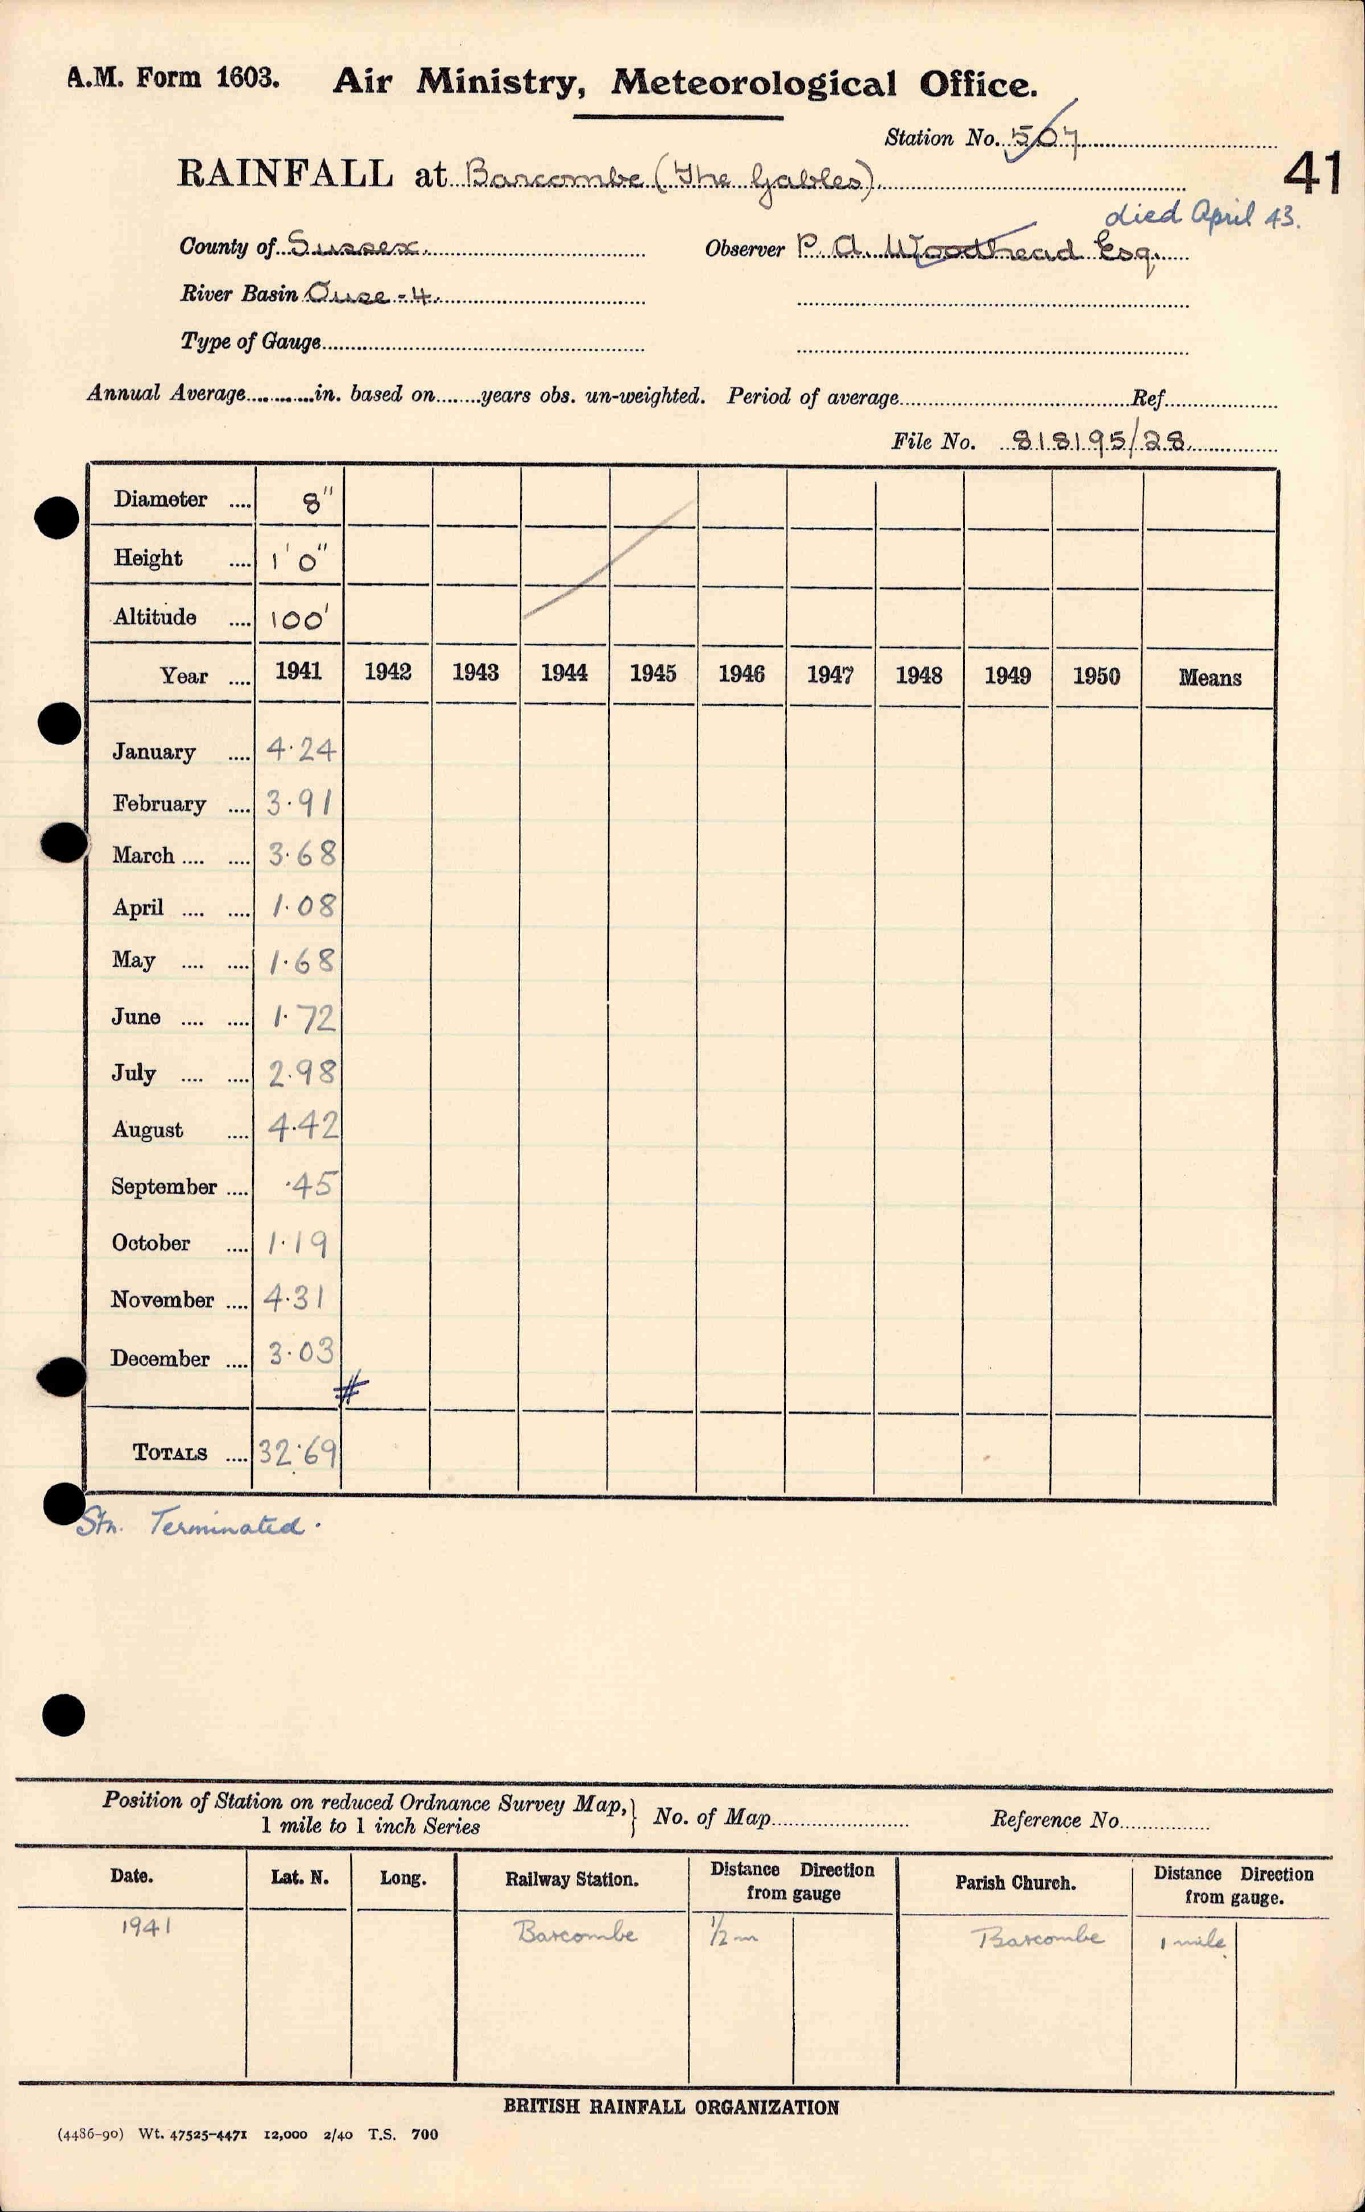 A.M. Form 1603. Air Ministry, Meteorological Office.
Station No. 507
41
RAINFALL at Barcombe (The Gables)
died April 43.
County of Sussex. Observer P. A. Woodhead Esq.
River Basin Ouse - 4.
Type of Gauge
Annual Average in. based on years obs. un-weighted. Period of average Ref.
File No. 818195/28
Diameter 8"
Height 1'0"
Altitude 100'
Year 1941 1942 1943 1944 1945 1946 1947 1948 1949 1950 Means
January 4.24
February 3.91
March 3.68
April 1.08
May 1.68
June 1.72
July 2.98
August 4.42
September .45
October 1.19
November 4.31
December 3.03
#
TOTALS 32.69
Stn. Terminated.
Position of Station on reduced Ordnance Survey Map, } No. of Map Reference No.
1 mile to 1 inch Series
Date. Lat. N. Long. Railway Station. Distance Direction from gauge Parish Church. Distance Direction from gauge.
1941 Barcombe 1/2 m Barcombe 1 mile.
BRITISH RAINFALL ORGANIZATION
(4486-90) Wt. 47525-4471 12,000 2/40 T.S. 700